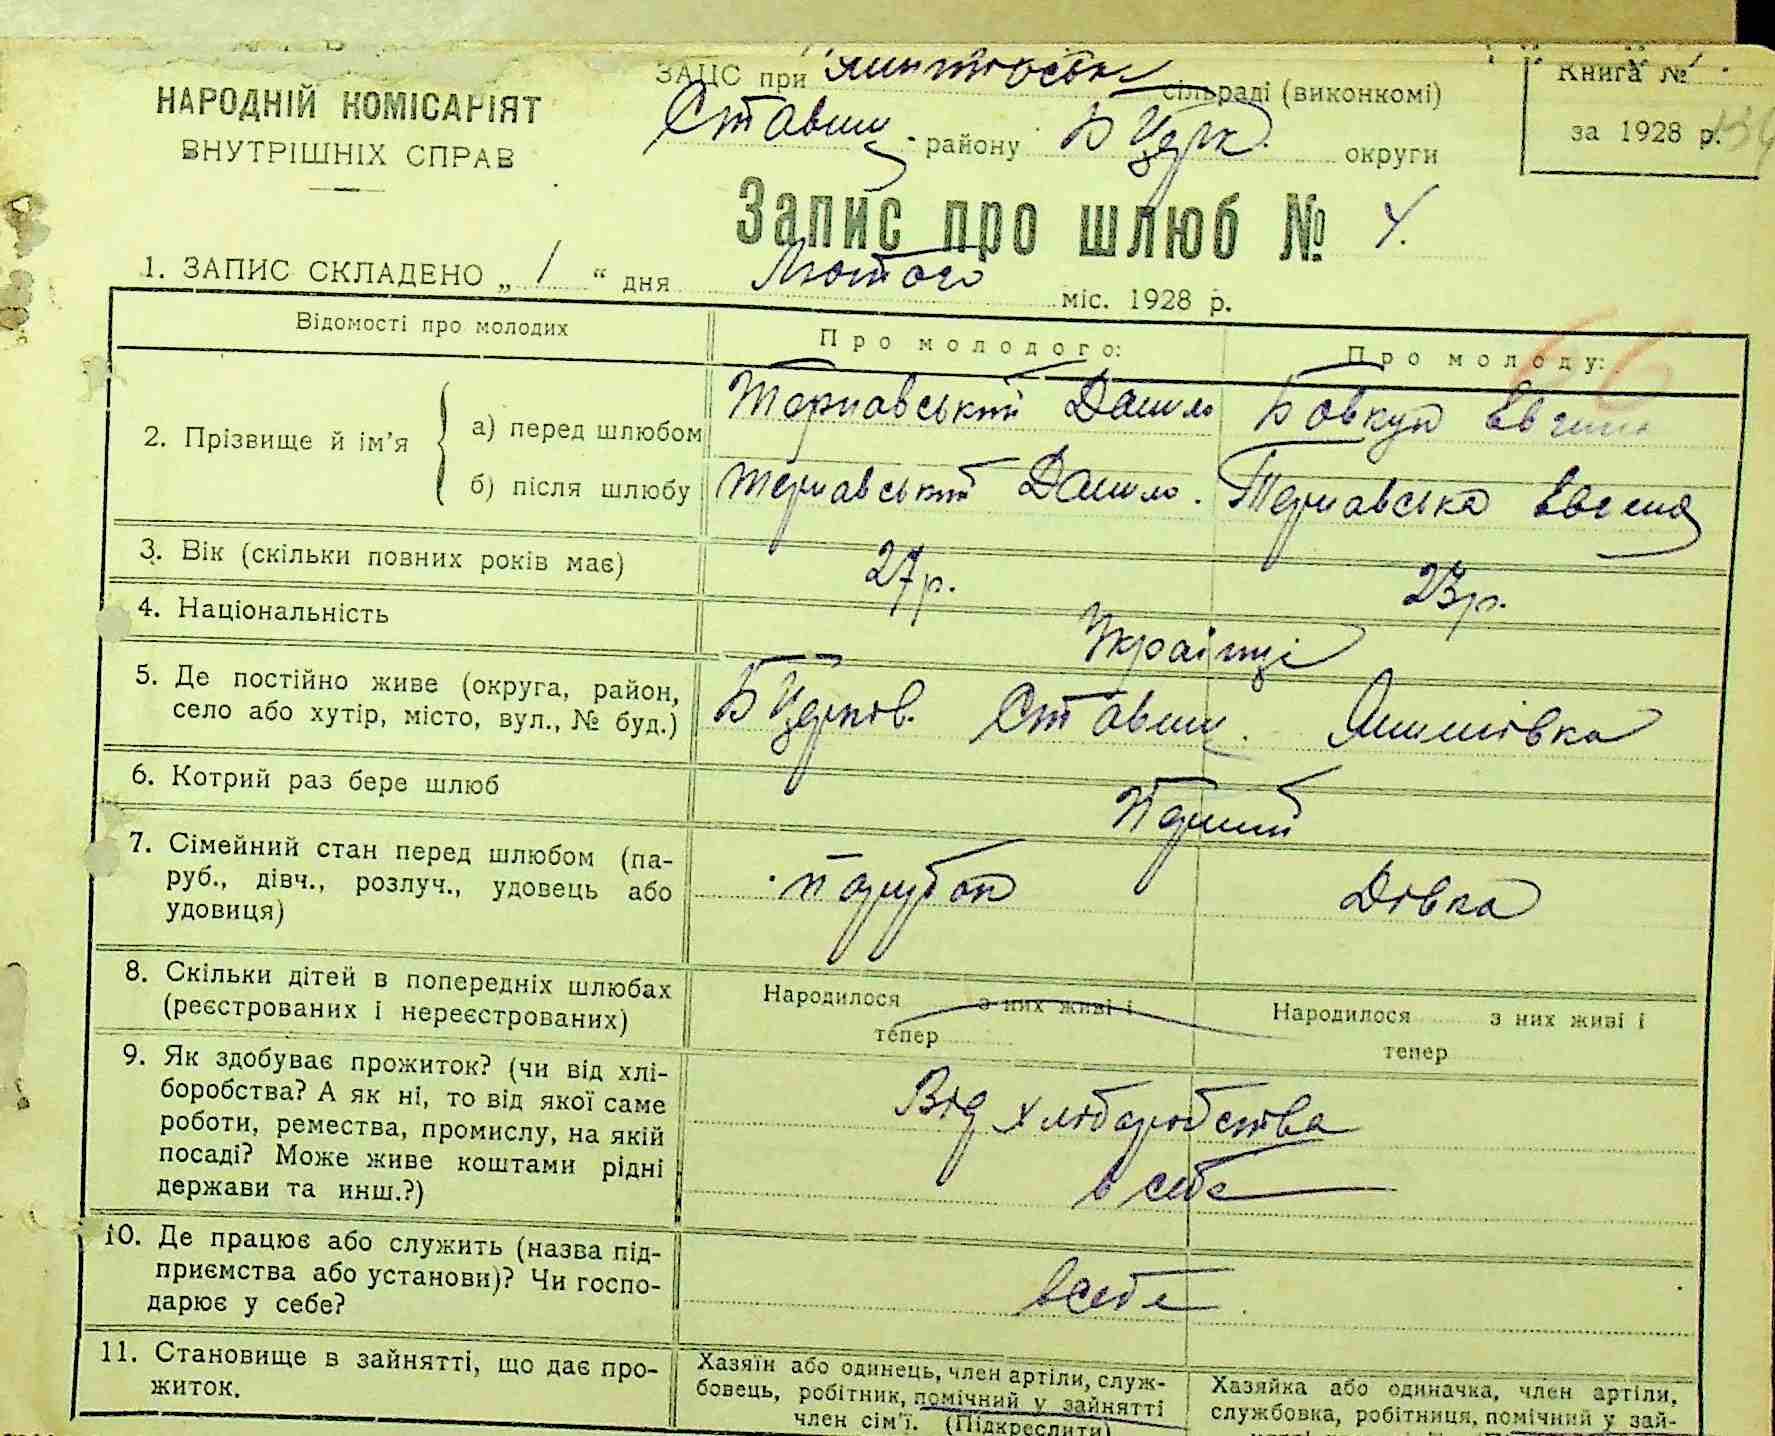 ЗАЦС при сільраді (виконкомі)
Книга №
НАРОДНІЙ КОМІСАРІЯТ
Ставищ. району Б Церк. округи
за 1928 р.
ВНУТРІШНІХ СПРАВ
Запис про шлюб № 4.
1. ЗАПИС СКЛАДЕНО „ 1 “ дня Лютого міс. 1928 р.
66
Відомості про молодих
Про молодого:
Про молоду:
2. Прізвище й ім’я
а) перед шлюбом
Тернавський Данило
Бовкун Евгенія
б) після шлюбу
Тернавський Данило.
Тернавська Евгенія
3. Вік (скільки повних років має)
27 р.
23 р.
4. Національність
Українці
5. Де постійно живе (округа, район,
село або хутір, місто, вул., № буд.)
Б Церков. Ставищ.
6. Котрий раз бере шлюб
Перший
7. Сімейний стан перед шлюбом (па-
руб., дівч., розлуч., удовець або
удовиця)
парубок
Дівка
8. Скільки дітей в попередніх шлюбах
(реєстрованих і нереєстрованих)
Народилося з них живі і
тепер
Народилося з них живі і
тепер
9. Як здобуває прожиток? (чи від хлі-
боробства? А як ні, то від якої саме
роботи, ремества, промислу, на якій
посаді? Може живе коштами рідні
держави та инш.?)
Від хліборобства
в себе
10. Де працює або служить (назва під-
приємства або установи)? Чи госпо-
дарює у себе?
в себе
11. Становище в зайнятті, що дає про-
житок.
Хазяїн або одинець, член артіли, служ-
бовець, робітник, помічний у зайнятті
член сім’ї. (Підкреслити)
Хазяйка або одиначка, член артіли,
службовка, робітниця, помічний у зай-